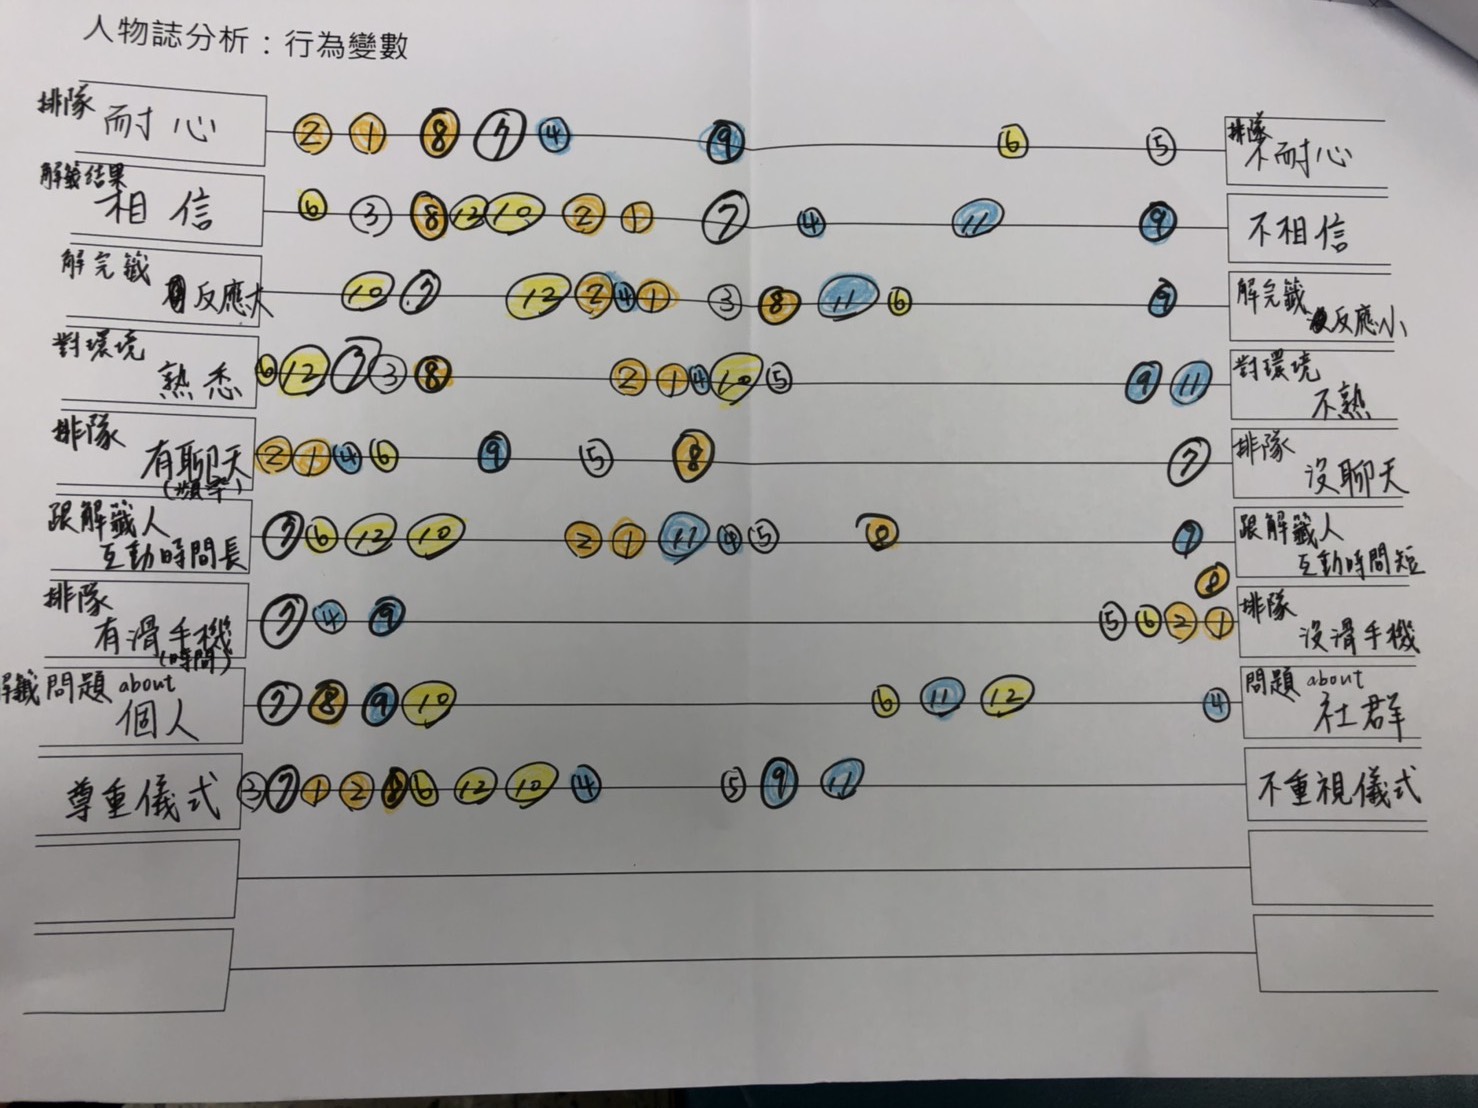 人物誌分析：行為變數
排隊 耐心 2 1 8 7 4 9 6 5 排隊 不耐心
解籤結果 相信 6 3 8 12 10 2 1 7 4 11 9 不相信
解完籤 反應大 10 7 12 2 4 1 3 8 11 6 9 解完籤 反應小
對環境 熟悉 6 12 7 3 8 2 1 4 10 5 9 11 對環境 不熟
排隊 有聊天 (頻率) 2 1 4 6 9 5 8 7 排隊 沒聊天
跟解籤人 互動時間長 7 6 12 10 2 1 11 4 5 8 9 跟解籤人 互動時間短
排隊 有滑手機 (時間) 7 4 9 5 6 2 8 1 排隊 沒滑手機
解籤問題 about 個人 7 8 9 10 6 11 12 4 問題 about 社群
尊重儀式 3 7 1 2 8 6 12 10 4 5 9 11 不重視儀式